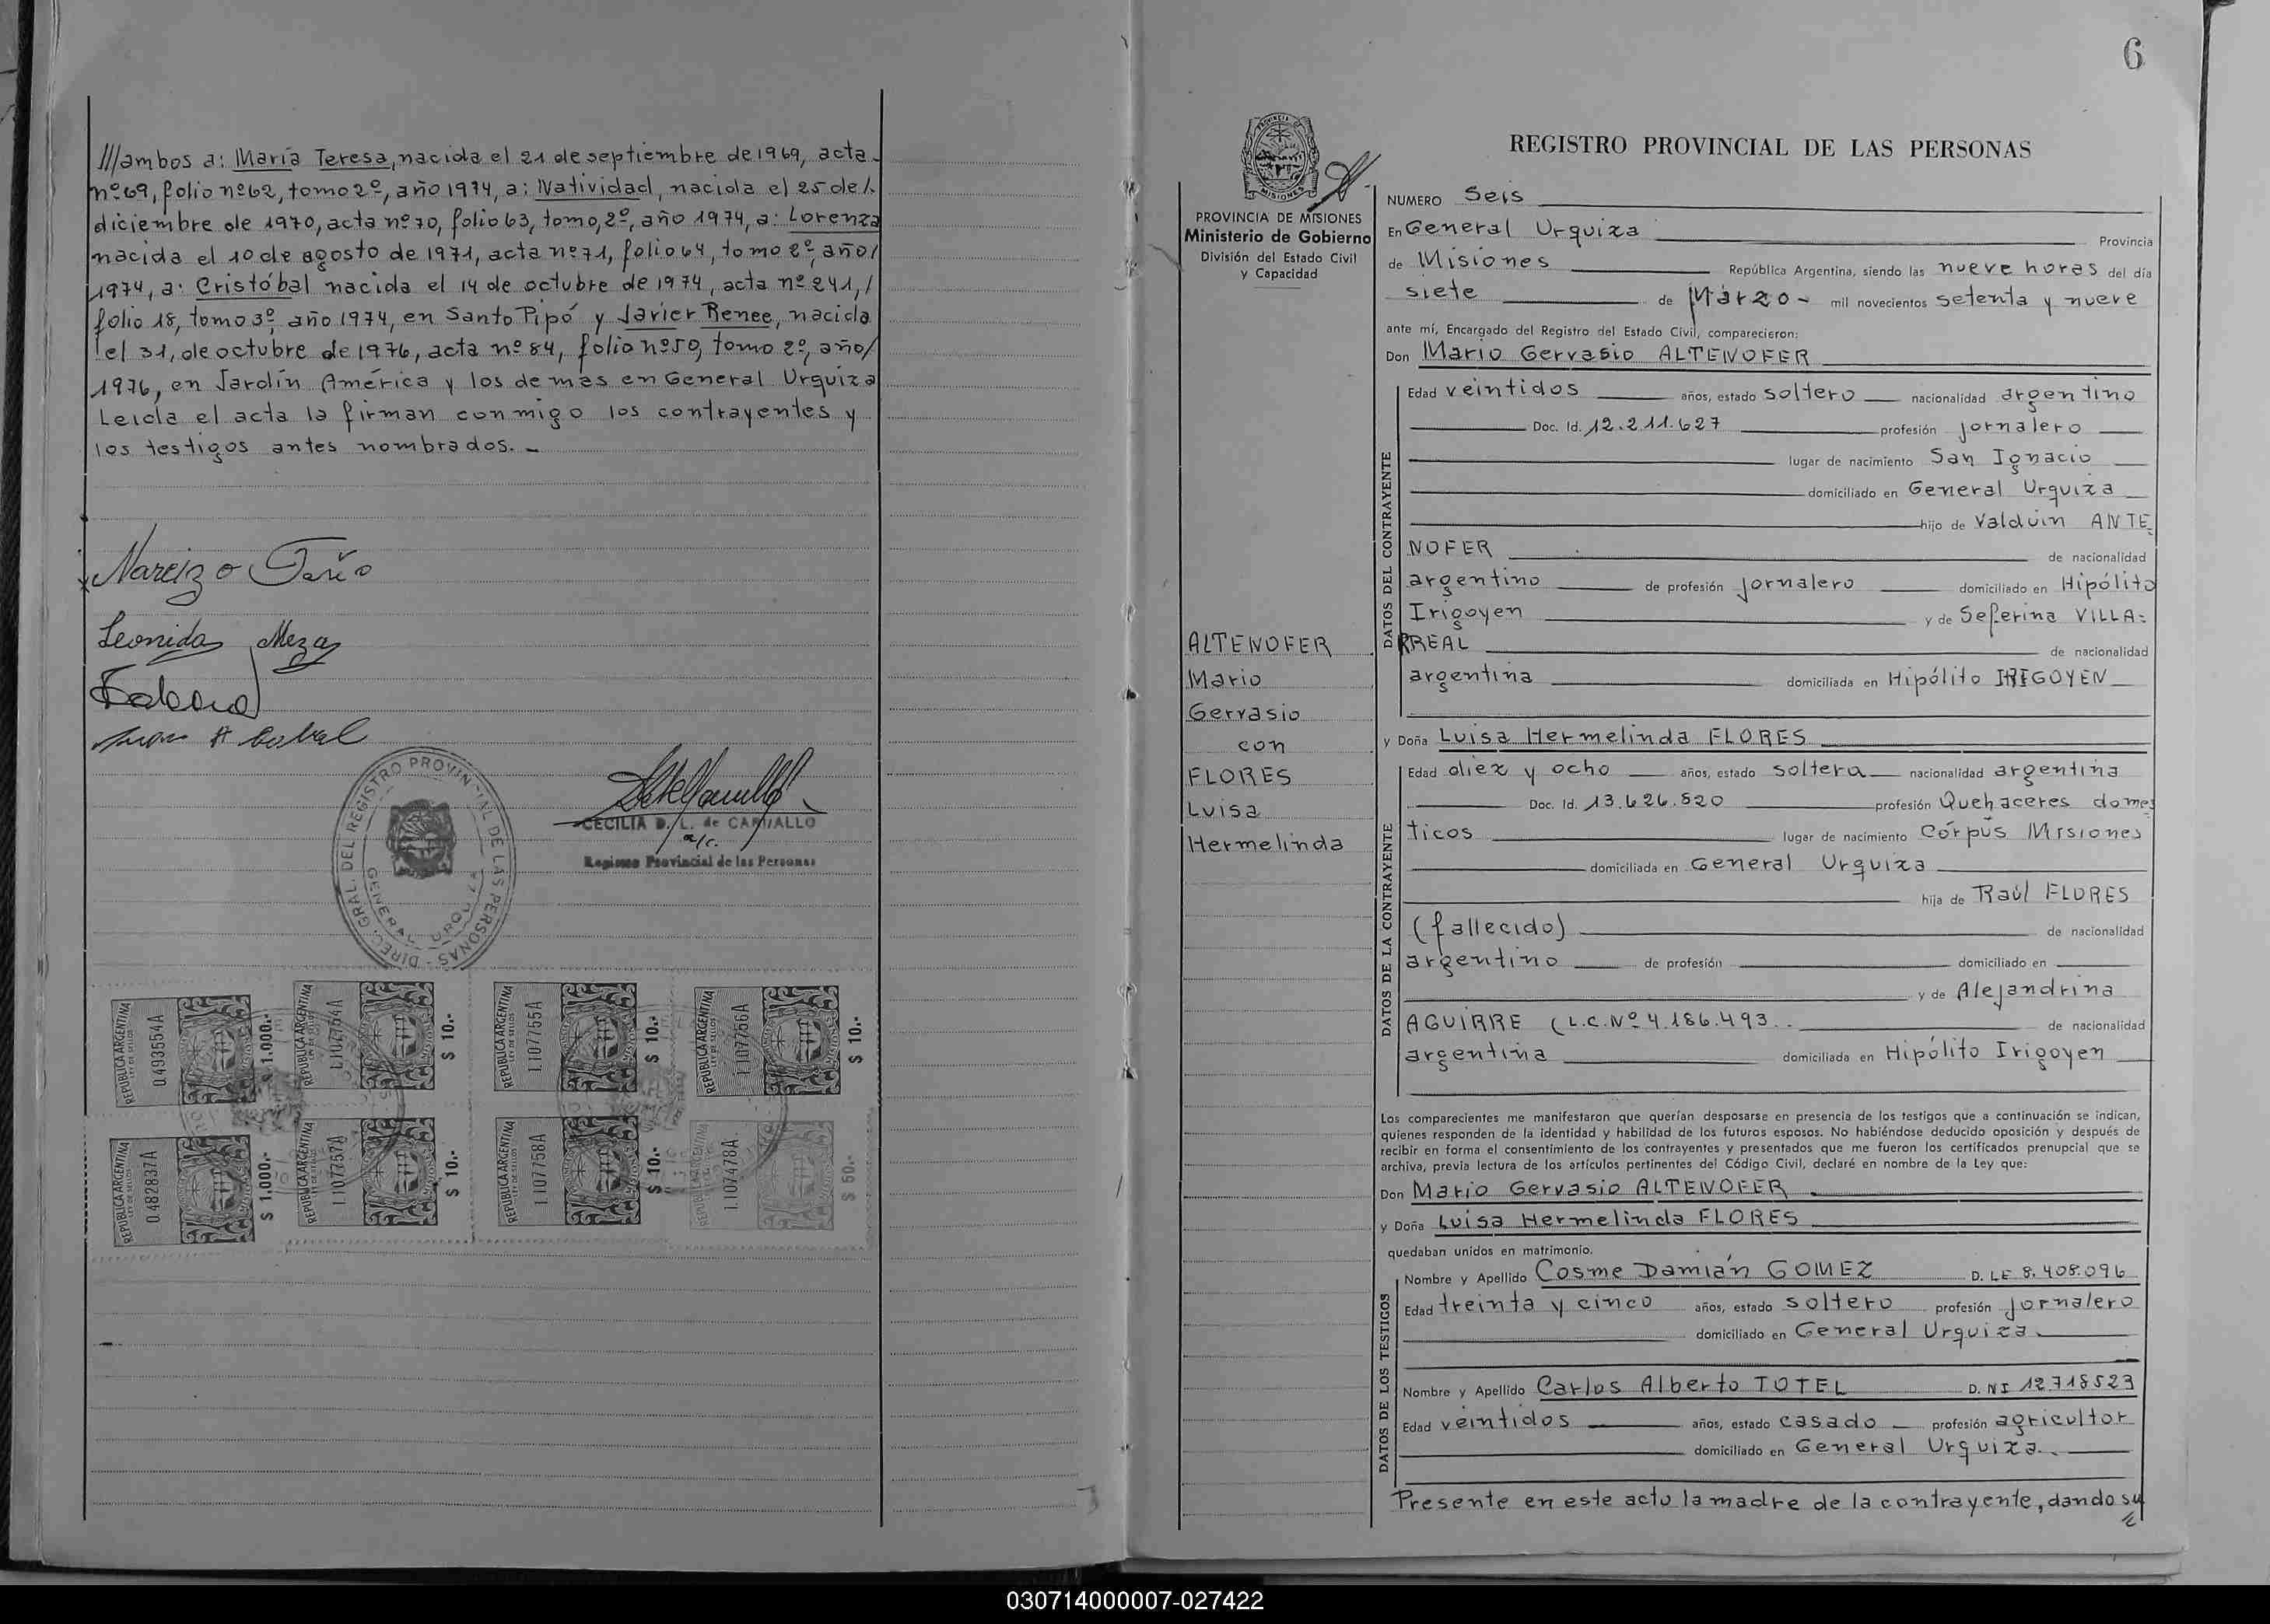 ///ambos a: María Teresa, nacida el 21 de septiembre de 1969, acta
nº 69, folio nº 62, tomo 2º, año 1974, a: Natividad, nacida el 25 de /.
diciembre de 1970, acta nº 70, folio 63, tomo, 2º, año 1974, a: Lorenza
nacida el 10 de agosto de 1971, acta nº 71, folio 64, tomo 2º, año/
1974, a: Cristóbal nacida el 14 de octubre de 1974, acta nº 241, /
folio 18, tomo 3º, año 1974, en Santo Pipó y Javier Renee, nacida
el 31, de octubre de 1976, acta nº 84, folio nº 50, tomo 2º, año/
1976, en Jardín América y los demás en General Urquiza
Leida el acta la firman conmigo los contrayentes y
los testigos antes nombrados. -
Narcizo
Leonida Meza
DIREC. GRAL. DEL REGISTRO PROVINCIAL DE LAS PERSONAS -
GENERAL URQUIZA
CECILIA D. L. de CARVALLO
a/c.
Registro Provincial de las Personas
REPUBLICA ARGENTINA
LEY DE SELLOS
0.493554A
$ 1.000.-
REPUBLICA ARGENTINA
LEY DE SELLOS
1.107754A
$ 10.-
REPUBLICA ARGENTINA
LEY DE SELLOS
1.107755A
$ 10.-
REPUBLICA ARGENTINA
LEY DE SELLOS
1.107756A
$ 10.-
REPUBLICA ARGENTINA
LEY DE SELLOS
0.482837A
$ 1.000.-
REPUBLICA ARGENTINA
LEY DE SELLOS
1.107757A
$ 10.-
REPUBLICA ARGENTINA
LEY DE SELLOS
1.107758A
$ 10.-
REPUBLICA ARGENTINA
LEY DE SELLOS
1.107478A
$ 50.-
6
PROVINCIA DE MISIONES
PROVINCIA DE MISIONES
Ministerio de Gobierno
División del Estado Civil
y Capacidad
ALTENOFER
Mario
Gervasio
con
FLORES
Luisa
Hermelinda
REGISTRO PROVINCIAL DE LAS PERSONAS
NUMERO Seis
En General Urquiza Provincia
de Misiones República Argentina, siendo las nueve horas del día
siete de Márzo - mil novecientos setenta y nueve
ante mí, Encargado del Registro del Estado Civil, comparecieron:
Don Mario Gervasio ALTENOFER
DATOS DEL CONTRAYENTE
Edad veintidos años, estado soltero nacionalidad argentino
Doc. Id. 12.211.627 profesión jornalero
lugar de nacimiento San Ignacio
domiciliado en General Urquiza
hijo de Valduin ANTE
NOFER de nacionalidad
argentino de profesión jornalero domiciliado en Hipólito
Irigoyen y de Seferina VILLA=
RREAL de nacionalidad
argentina domiciliada en Hipólito IRIGOYEN
y Doña Luisa Hermelinda FLORES
DATOS DE LA CONTRAYENTE
Edad diez y ocho años, estado soltera nacionalidad argentina
Doc. Id. 13.626.520 profesión Quehaceres domes
ticos lugar de nacimiento Córpus Misiones
domiciliada en General Urquiza
hija de Raúl FLORES
(fallecido) de nacionalidad
argentino de profesión domiciliado en
y de Alejandrina
AGUIRRE (L.C. Nº 4.186.493.. de nacionalidad
argentina domiciliada en Hipólito Irigoyen
Los comparecientes me manifestaron que querían desposarse en presencia de los testigos que a continuación se indican,
quienes responden de la identidad y habilidad de los futuros esposos. No habiéndose deducido oposición y después de
recibir en forma el consentimiento de los contrayentes y presentados que me fueron los certificados prenupcial que se
archiva, previa lectura de los artículos pertinentes del Código Civil, declaré en nombre de la Ley que:
Don Mario Gervasio ALTENOFER
y Doña Luisa Hermelinda FLORES
quedaban unidos en matrimonio.
DATOS DE LOS TESTIGOS
Nombre y Apellido Cosme Damián GOMEZ D. LE 8.408.096
Edad treinta y cinco años, estado soltero profesión jornalero
domiciliado en General Urquiza.
Nombre y Apellido Carlos Alberto TOTEL D. NI 12.718523
Edad veintidos años, estado casado profesión agricultor
domiciliado en General Urquiza.
Presente en este acto la madre de la contrayente, dando su
030714000007-027422